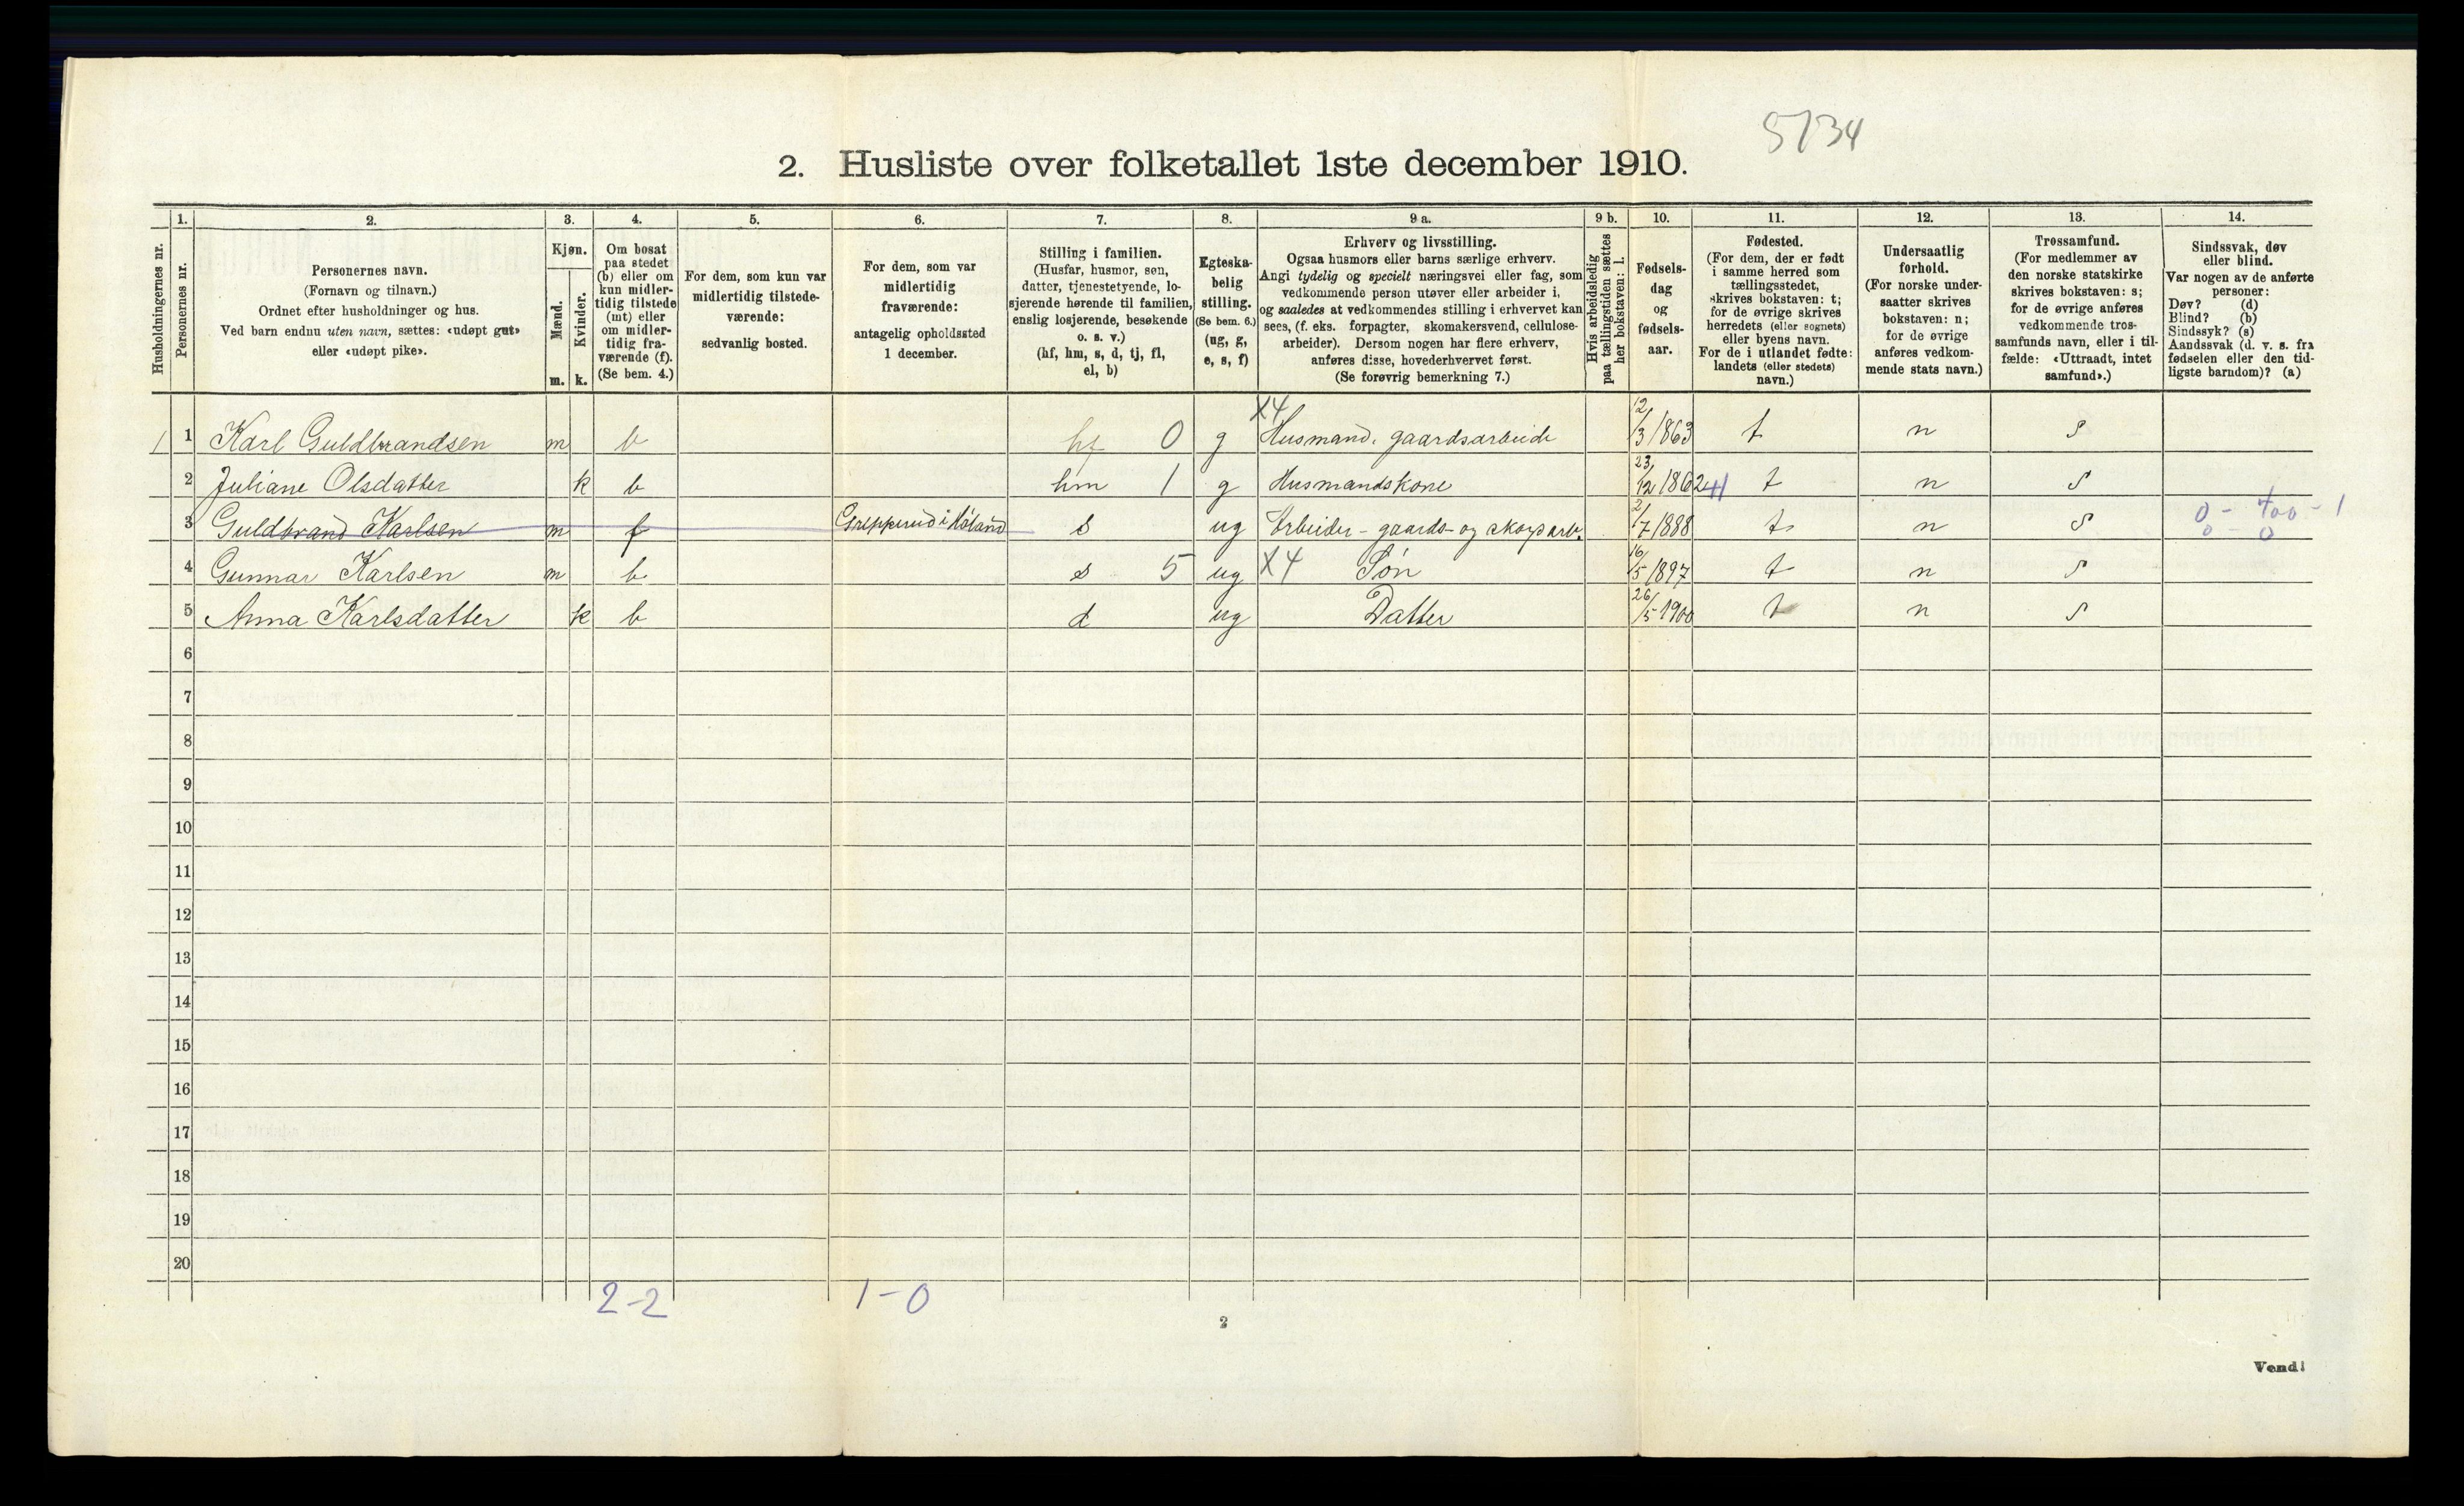 5734
2. Husliste over folketallet 1ste december 1910.
Husholdningernes nr.
1.
Personernes nr.
2.
Personernes navn.
(Fornavn og tilnavn.)
Ordnet efter husholdninger og hus.
Ved barn endnu uten navn, sættes: «udøpt gut»
eller «udøpt pike».
3.
Kjøn.
Mænd.
m.
Kvinder.
k.
4.
Om bosat
paa stedet
(b) eller om
kun midler-
tidig tilstede
(mt) eller
om midler-
tidig fra-
værende (f).
(Se bem. 4.)
5.
For dem, som kun var
midlertidig tilstede-
værende:
sedvanlig bosted.
6.
For dem, som var
midlertidig
fraværende:
antagelig opholdssted
1 december.
7.
Stilling i familien.
(Husfar, husmor, søn,
datter, tjenestetyende, lo-
sjerende hørende til familien,
enslig losjerende, besøkende
o. s. v.)
(hf, hm, s, d, tj, fl,
el, b)
8.
Egteska-
belig
stilling.
(Se bem. 6.)
(ug, g,
e, s, f)
9 a.
Erhverv og livsstilling.
Ogsaa husmors eller barns særlige erhverv.
Angi tydelig og specielt næringsvei eller fag, som
vedkommende person utøver eller arbeider i,
og saaledes at vedkommendes stilling i erhvervet kan
sees, (f. eks. forpagter, skomakersvend, cellulose-
arbeider). Dersom nogen har flere erhverv,
anføres disse, hovederhvervet først.
(Se forøvrig bemerkning 7.)
9 b.
Hvis arbeidsledig
paa tællingstiden sættes
her bokstaven: l.
10.
Fødsels-
dag
og
fødsels-
aar.
11.
Fødested.
(For dem, der er født
i samme herred som
tællingsstedet,
skrives bokstaven: t;
for de øvrige skrives
herredets (eller sognets)
eller byens navn.
For de i utlandet fødte:
landets (eller stedets)
navn.)
12.
Undersaatlig
forhold.
(For norske under-
saatter skrives
bokstaven: n;
for de øvrige
anføres vedkom-
mende stats navn.)
13.
Trossamfund.
(For medlemmer av
den norske statskirke
skrives bokstaven: s;
for de øvrige anføres
vedkommende tros-
samfunds navn, eller i til-
fælde: «Uttraadt, intet
samfund».)
14.
Sindssvak, døv
eller blind.
Var nogen av de anførte
personer:
Døv? (d)
Blind? (b)
Sindssyk? (s)
Aandssvak (d. v. s. fra
fødselen eller den tid-
ligste barndom)? (a)
1 1 Karl Guldbrandsen m b hf 0 g X4 Husmand. gaardsarbeide 12/3 1863 t n s
2 Juliane Olsdatter k b hm 1 g Husmandskone 23/12 1862 t n s
3 Guldbrand Karlsen m f i Høland s ug Arbeider - gaards- og skogsarb. 2/7 1888 t n s 0 - 400 - 1
0 - 0
4 Gunnar Karlsen m b s 5 ug X4 Søn 16/5 1897 t n s
5 Anna Karlsdatter k b d ug Datter 26/5 1900 t n s
6
7
8
9
10
11
12
13
14
15
16
17
18
19
20
2-2 1-0
2
Vend!